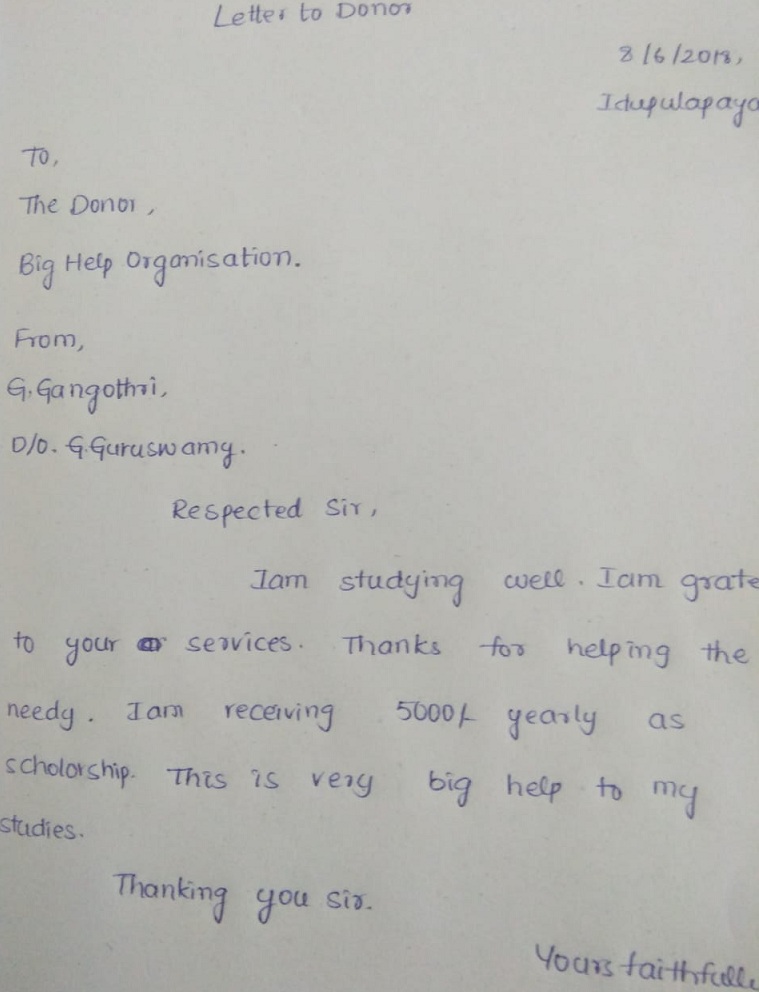 Letter to Donor
8/6/2018,
Idupulapaya
To,
The Donor,
Big Help Organisation.
From,
G. Gangothri,
D/o. G.Guruswamy.
Respected Sir,
Iam studying well. Iam grate
to your services. Thanks for helping the
needy. Iam receiving 5000/- yearly as
scholorship. This is very big help to my
studies.
Thanking you sir.
Yours faithfull